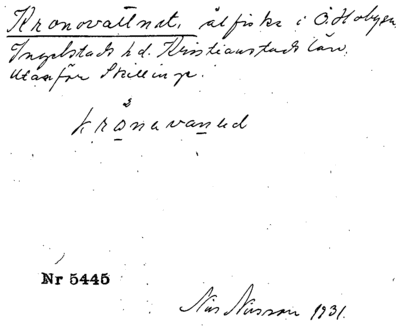 Kronovattnet, ålfiske i Ö. Hoby sn
Ingelstads hd. Kristianstads län.
Utanför Skillinge.
krǻnavaned
Nr 5445
Nils Nilsson 1931.